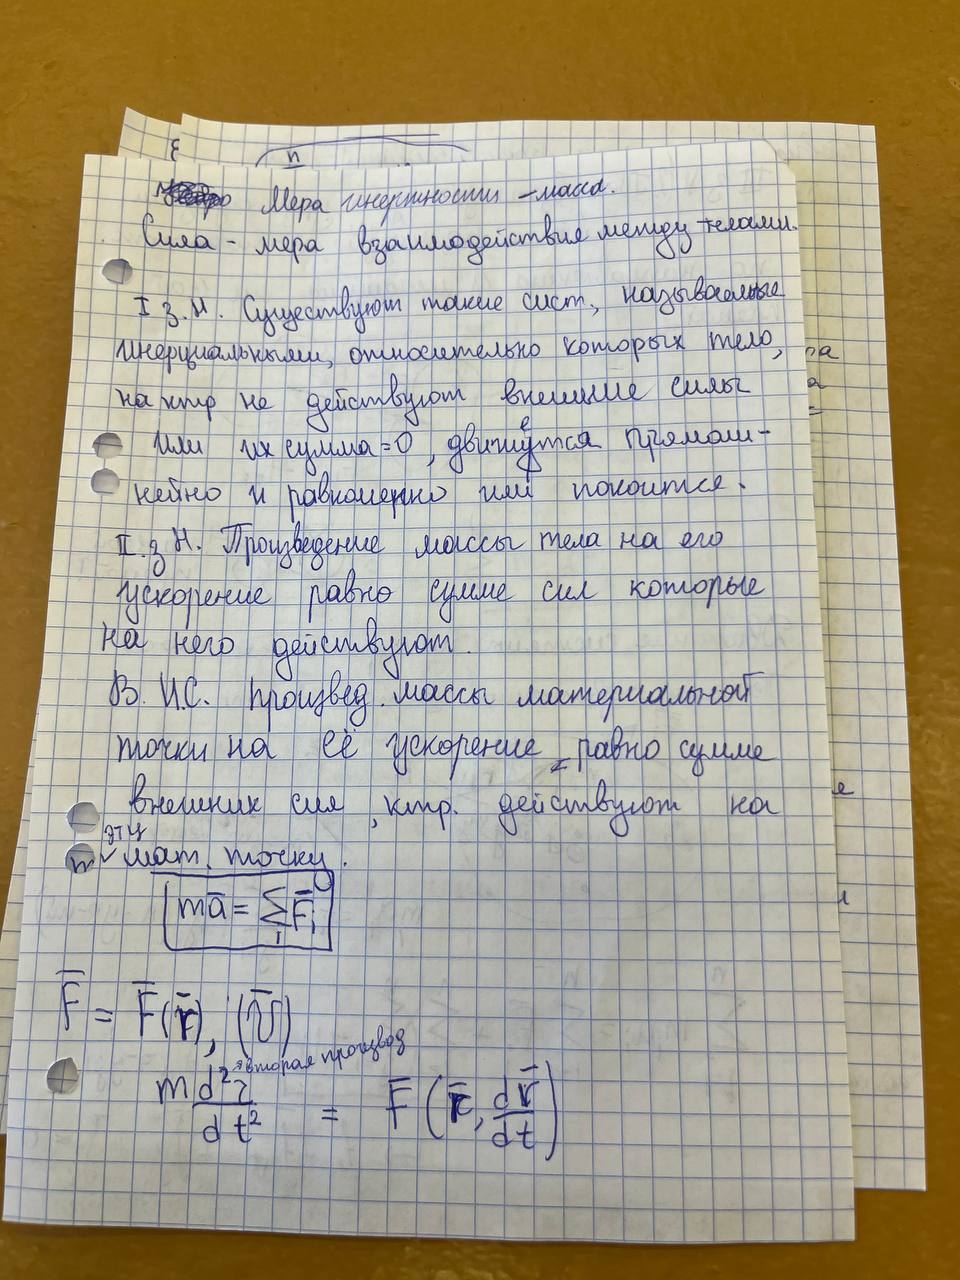 Мера инертности - масса.
Сила - мера взаимодействия между телами.
I з.Н. Существуют такие сист, называемые
инерциальными, относительно которых тело,
на ктр не действуют внешние силы
или их сумма = 0, движется прямоли-
нейно и равномерно или покоится.
II. з Н. Произведение массы тела на его
ускорение равно сумме сил которые
на него действуют.
В. И.С. произвед. массы материальной
точки на её ускорение равно сумме
внешних сил, ктр. действуют на
эту
мат. точку.
mā = Σ F̄i
i
F̄ = F̄(r̄), (v̄)
вторая производ
m d²r̄ / dt² = F̄ (r̄, dr̄/dt)
n